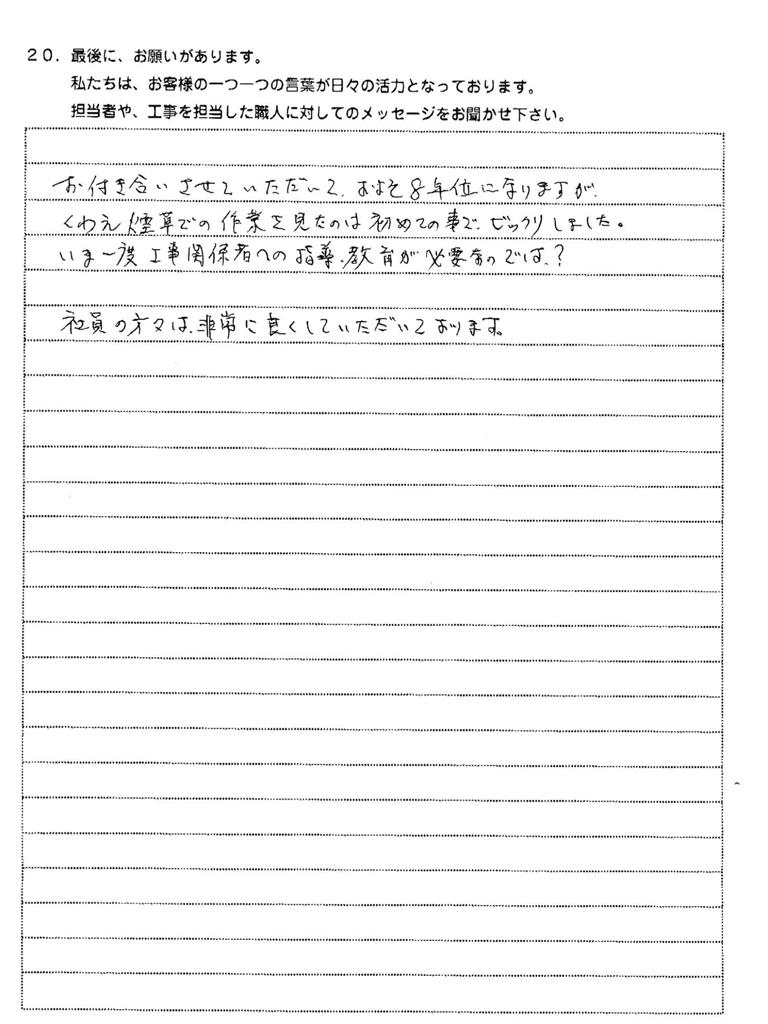 20. 最後に、お願いがあります。
私たちは、お客様の一つ一つの言葉が日々の活力となっております。
担当者や、工事を担当した職人に対してのメッセージをお聞かせ下さい。
お付き合いさせていただいて、およそ8年位になりますが、
くわえ煙草での作業を見たのは初めての事で、びっくりしました。
いま一度工事関係者への指導、教育が必要なのでは、?
社員の方々は、非常に良くしていただいております。